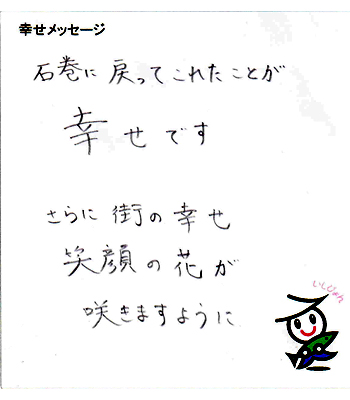 幸せメッセージ
石巻に戻ってこれたことが
幸せです
さらに街の幸せ
笑顔の花が
咲きますように
いしぴょん